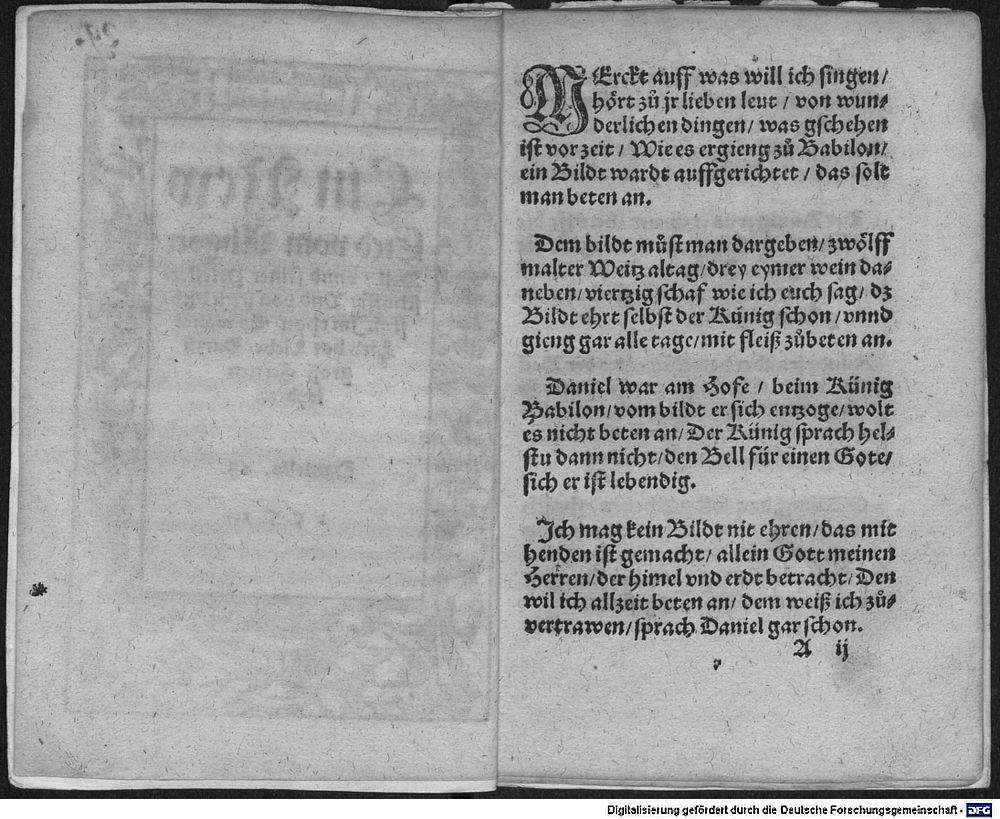 MErckt auff was will ich singen /
hört zů jr lieben leut / von wun⸗
derlichen dingen / was gschehen
ist vor zeit / Wie es ergieng zů Babilon /
ein Bildt wardt auffgerichtet / das solt
man beten an.
Dem bildt můst man dargeben / zwölff
malter Weitz altag / drey eymer wein da⸗
neben / viertzig schaf wie ich euch sag / dz
Bildt ehrt selbst der Künig schon / vnnd
gieng gar alle tage / mit fleiß zůbeten an.
Daniel war am Hofe / beim Künig
Babilon / vom bildt er sich entzoge / wolt
es nicht beten an / Der Künig sprach hel⸗
stu dann nicht / den Bell für einen Gote /
sich er ist lebendig.
Ich mag kein Bildt nit ehren / das mit
henden ist gemacht / allein Gott meinen
Herren / der himel vnd erdt betracht / Den
wil ich allzeit beten an / dem weiß ich zů⸗
vertrawen / sprach Daniel gar schon.
A ij
Digitalisierung gefördert durch die Deutsche Forschungsgemeinschaft - DFG